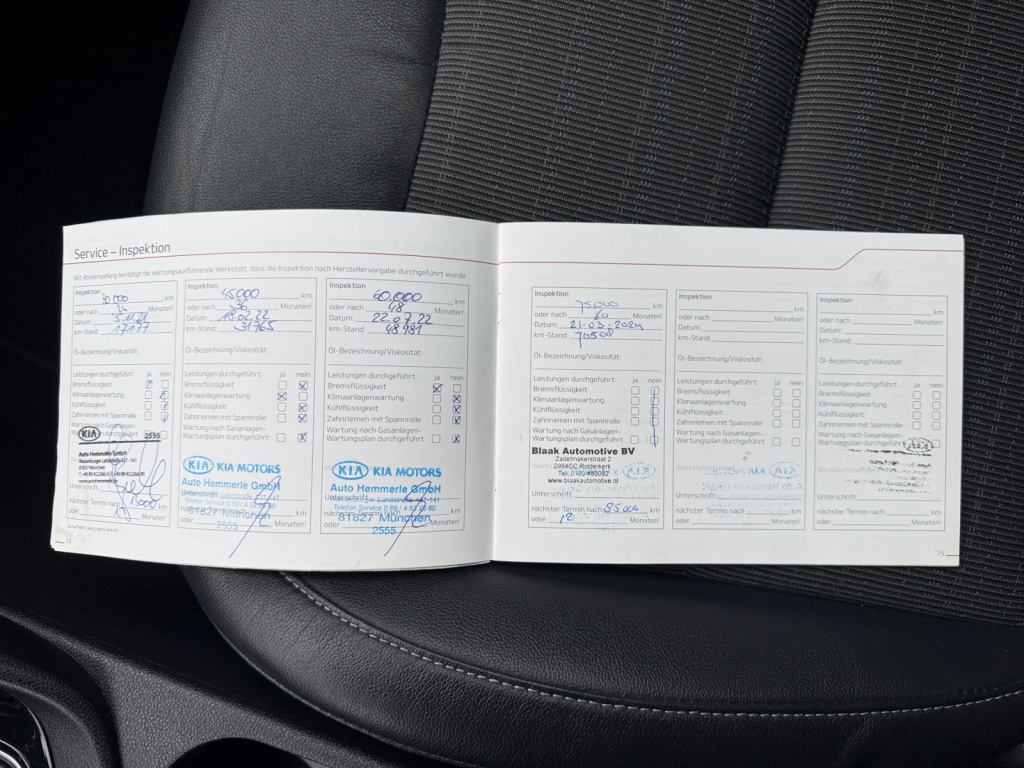 Service – Inspektion
Mit Abstempelung bestätigt die wartungsausführende Werkstatt, dass die Inspektion nach Herstellervorgabe durchgeführt wurde
Inspektion
30.000 km
oder nach Monaten
Datum:
km-Stand: 17177
Öl-Bezeichnung/Viskosität:
Leistungen durchgeführt: ja nein
Bremsflüssigkeit
Klimaanlagenwartung
Kühlflüssigkeit
Zahnriemen mit Spannrolle
Wartung nach Gasanlagen-
Wartungsplan durchgeführt
KIA 2555
Auto Hemmerle GmbH
81827 München
Unterschrift:
nächster Termin nach km
oder Monaten
14
Inspektion
45000 km
oder nach 36 Monaten
Datum: 18.02.22
km-Stand: 31765
Öl-Bezeichnung/Viskosität:
Leistungen durchgeführt: ja nein
Bremsflüssigkeit
Klimaanlagenwartung
Kühlflüssigkeit
Zahnriemen mit Spannrolle
Wartung nach Gasanlagen-
Wartungsplan durchgeführt
KIA KIA MOTORS
Auto Hemmerle GmbH
Unterschrift:
nächster Termin nach km
81827 München
oder Monaten
2555
Inspektion
60.000 km
oder nach 48 Monaten
Datum: 22.07.22
km-Stand: 48981
Öl-Bezeichnung/Viskosität:
Leistungen durchgeführt: ja nein
Bremsflüssigkeit
Klimaanlagenwartung
Kühlflüssigkeit
Zahnriemen mit Spannrolle
Wartung nach Gasanlagen-
Wartungsplan durchgeführt
KIA KIA MOTORS
Auto Hemmerle GmbH
Unterschrift:
nächster Termin nach km
81827 München
oder Monaten
2555
Inspektion
75000 km
oder nach 60 Monaten
Datum: 21-03-2024
km-Stand: 70500
Öl-Bezeichnung/Viskosität:
Leistungen durchgeführt: ja nein
Bremsflüssigkeit
Klimaanlagenwartung
Kühlflüssigkeit
Zahnriemen mit Spannrolle
Wartung nach Gasanlagen-
Wartungsplan durchgeführt
Blaak Automotive BV
Zadelmakerstraat 2
2984CC Ridderkerk
Tel: 0180 480082
www.blaakautomotive.nl
Unterschrift:
nächster Termin nach 85000 km
oder 12 Monaten
Inspektion
km
oder nach Monaten
Datum:
km-Stand:
Öl-Bezeichnung/Viskosität:
Leistungen durchgeführt: ja nein
Bremsflüssigkeit
Klimaanlagenwartung
Kühlflüssigkeit
Zahnriemen mit Spannrolle
Wartung nach Gasanlagen-
Wartungsplan durchgeführt
Unterschrift:
nächster Termin nach km
oder Monaten
Inspektion
km
oder nach Monaten
Datum:
km-Stand:
Öl-Bezeichnung/Viskosität:
Leistungen durchgeführt: ja nein
Bremsflüssigkeit
Klimaanlagenwartung
Kühlflüssigkeit
Zahnriemen mit Spannrolle
Wartung nach Gasanlagen-
Wartungsplan durchgeführt
Unterschrift:
nächster Termin nach km
oder Monaten
15